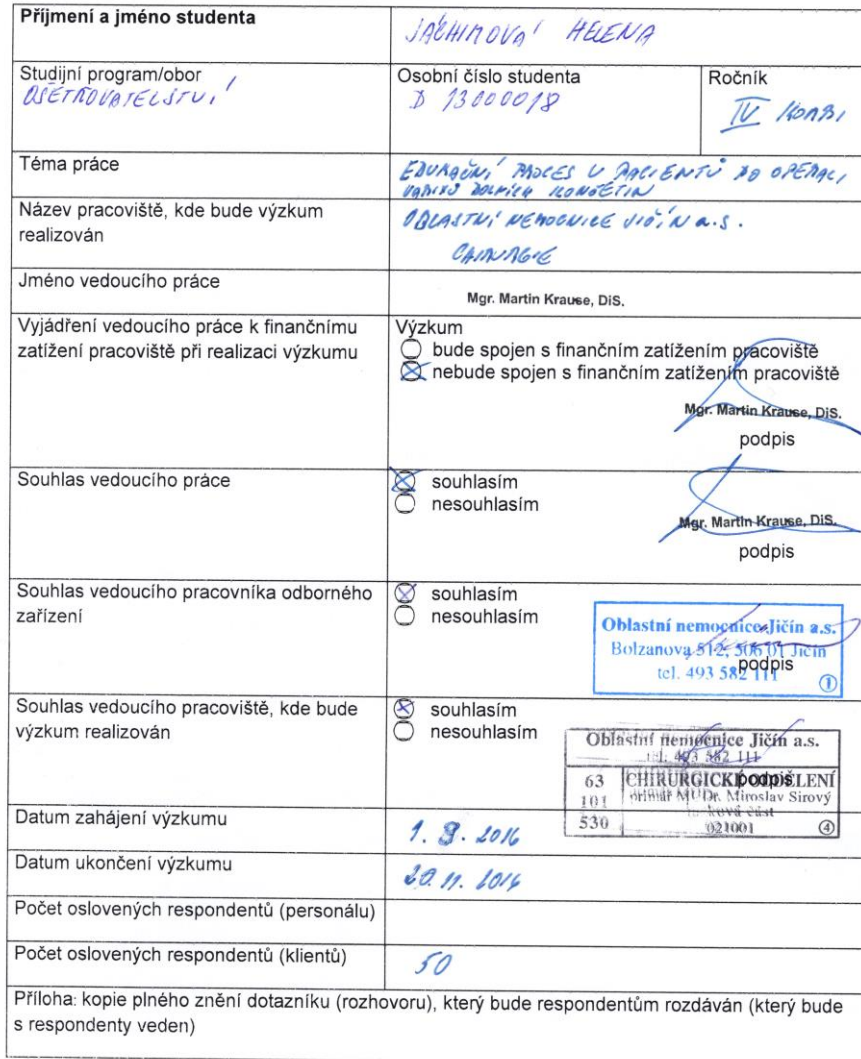 Příjmení a jméno studenta
JÁCHIMOVÁ HELENA
Studijní program/obor
OŠETŘOVATELSTVÍ
Osobní číslo studenta
D 13000018
Ročník
IV KOMBI
Téma práce
EDUKAČNÍ PROCES U PACIENTŮ PO OPERACI
VARIXŮ DOLNÍCH KONČETIN
Název pracoviště, kde bude výzkum
realizován
OBLASTNÍ NEMOCNICE JIČÍN a.s.
CHIRURGIE
Jméno vedoucího práce
Mgr. Martin Krause, DiS.
Vyjádření vedoucího práce k finančnímu
zatížení pracoviště při realizaci výzkumu
Výzkum
bude spojen s finančním zatížením pracoviště
nebude spojen s finančním zatížením pracoviště
Mgr. Martin Krause, DiS.
podpis
Souhlas vedoucího práce
souhlasím
nesouhlasím
Mgr. Martin Krause, DiS.
podpis
Souhlas vedoucího pracovníka odborného
zařízení
souhlasím
nesouhlasím
Oblastní nemocnice Jičín a.s.
Bolzanova 512, 506 01 Jičín
podpis
tel. 493 582 111 1
Souhlas vedoucího pracoviště, kde bude
výzkum realizován
souhlasím
nesouhlasím
Oblastní nemocnice Jičín a.s.
tel. 493 582 111
podpis
63 CHIRURGICKÉ ODDĚLENÍ
101 primář MUDr. Miroslav Sirový
lůžková část
530 021001 4
Datum zahájení výzkumu
1. 9. 2016
Datum ukončení výzkumu
20. 11. 2016
Počet oslovených respondentů (personálu)
Počet oslovených respondentů (klientů)
50
Příloha: kopie plného znění dotazníku (rozhovoru), který bude respondentům rozdáván (který bude
s respondenty veden)